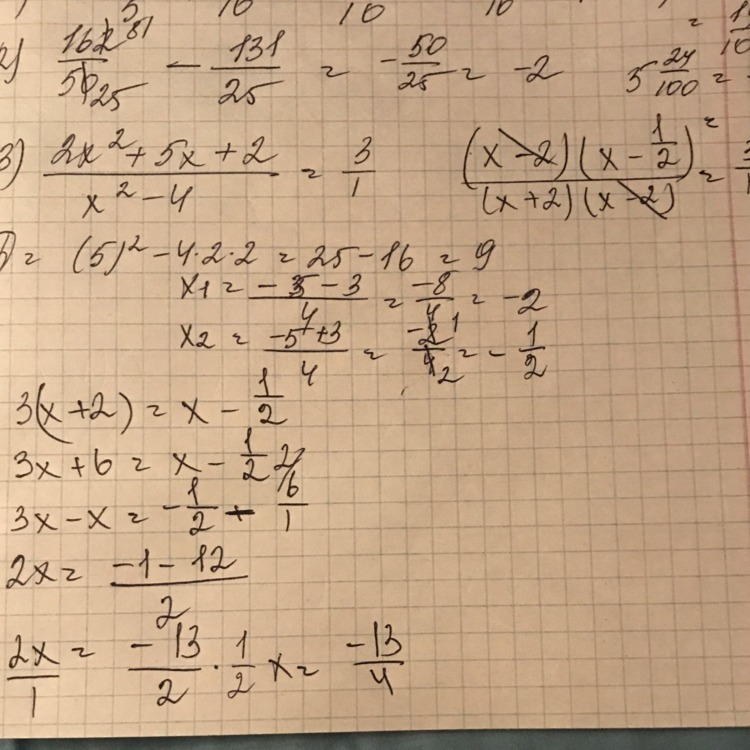 2) 162/50 81/25 − 131/25 = −50/25 = −2 5 24/100 =
3) (2x² + 5x + 2)/(x² − 4) = 3/1 ((x − 2)(x − 1/2))/((x + 2)(x − 2)) = 3/1
D = (5)² − 4·2·2 = 25 − 16 = 9
x1 = (−5 − 3)/4 = −8/4 = −2
x2 = (−5 + 3)/4 = −2/4 1/2 = −1/2
3(x + 2) = x − 1/2
3x + 6 = x − 1/2
3x − x = −1/2 − 6/1
2x = (−1 − 12)/2
2x/1 = −13/2 · 1/2 x = −13/4